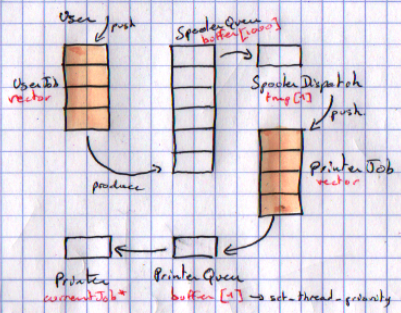 User
push
SpoolerQueu
buffer[1000]
UserJob
vector
SpoolerDispatch
tmp[1]
push
produce
PrinterJob
vector
Printer
currentJob*
PrinterQueu
buffer [1] → set_thread_priority